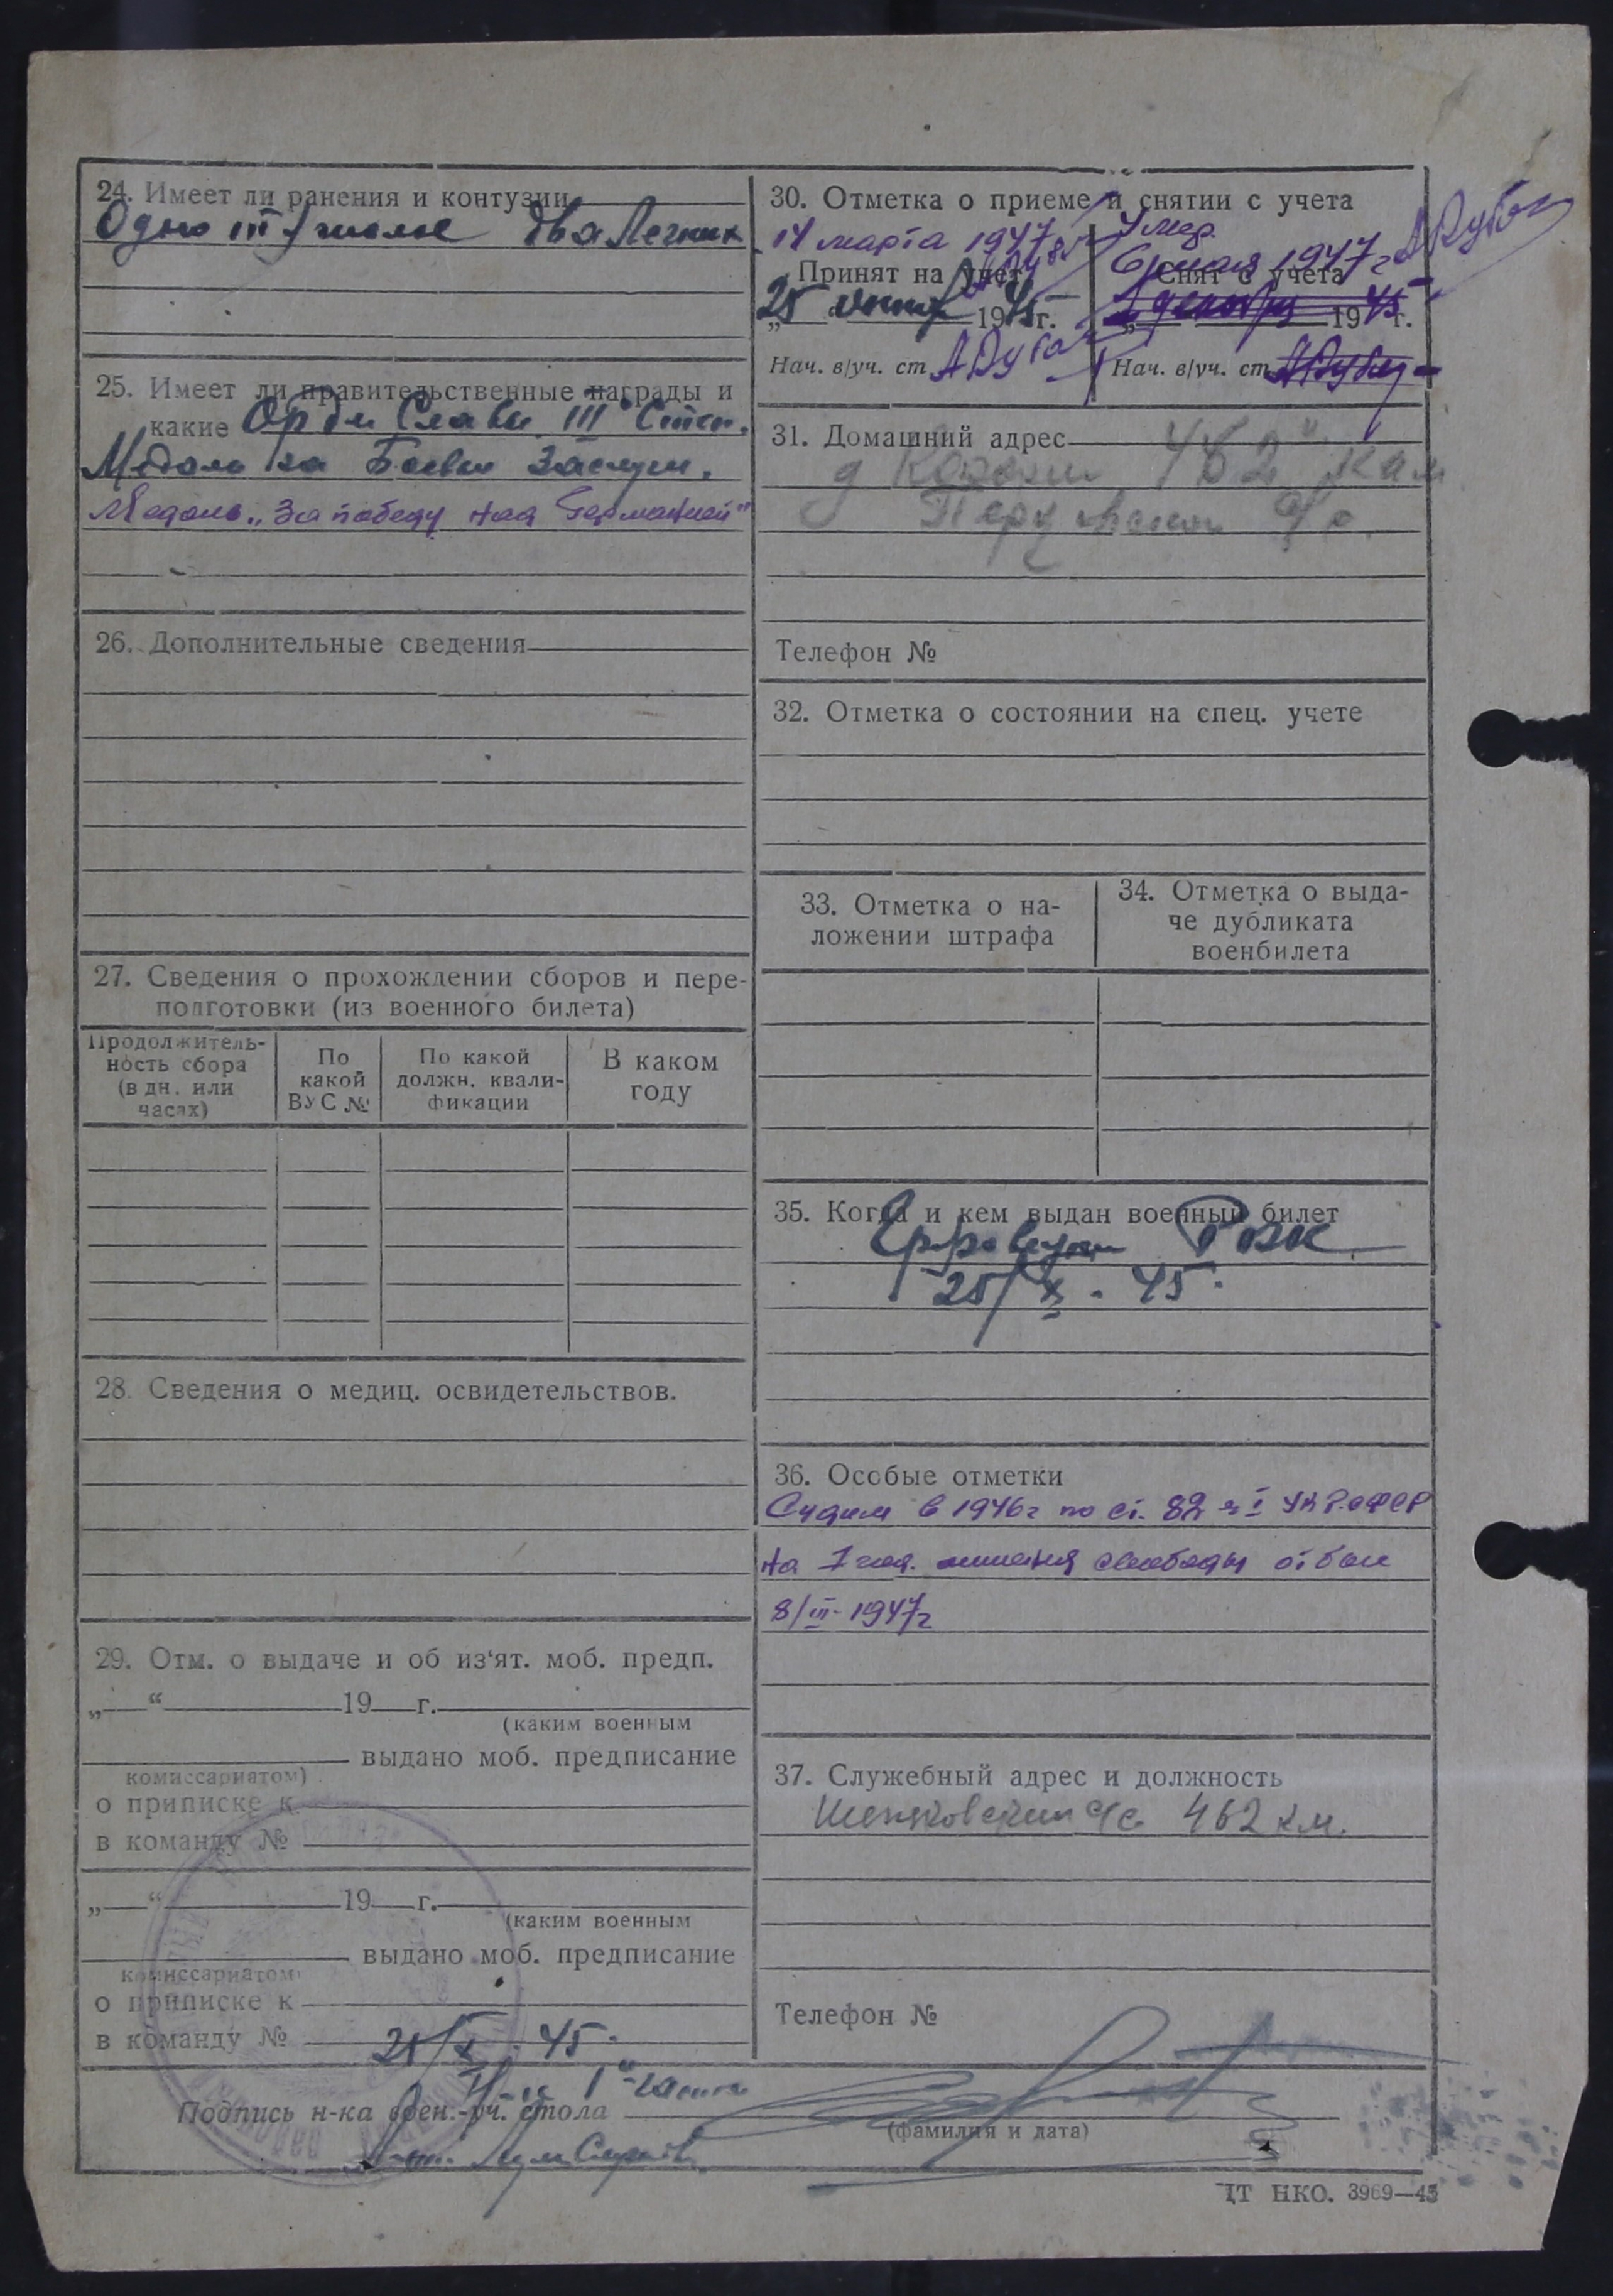 24. Имеет ли ранения и контузии
Одно тяжелое два Легких
25. Имеет ли правительственные награды и
какие Орден Славы III Степ.
Медаль за Боевые Заслуги.
Медаль „За победу над Германией"
26. Дополнительные сведения
27. Сведения о прохождении сборов и пере-
подготовки (из военного билета)
Продолжитель-
ность сбора
(в дн. или
часах)
По
какой
ВУС №
По какой
должн. квали-
фикации
В каком
году
28. Сведения о медиц. освидетельствов.
29. Отм. о выдаче и об из‘ят. моб. предп.
„ “ 19 г.
(каким военным
выдано моб. предписание
комиссариатом)
о приписке к
в команду №
„ “ 19 г.
(каким военным
выдано моб. предписание
комиссариатом)
о приписке к
в команду №
25/X. 45.
30. Отметка о приеме и снятии с учета
14 марта 1947
Умер.
6 мая 1947 г
Принят на учет
Снят с учета
25 1945 г.
1 декабря 1945 г.
Нач. в/уч. ст
Нач. в/уч. ст
31. Домашний адрес
д 462 кам
с/с.
Телефон №
32. Отметка о состоянии на спец. учете
33. Отметка о на-
ложении штрафа
34. Отметка о выда-
че дубликата
военбилета
35. Когда и кем выдан военный билет
РВК
25/X. 45.
36. Особые отметки
Судим в 1946г по ст. 82 ч I УК РСФСР
на 1 год. лишения свободы отбыл
8/III-1947г
37. Служебный адрес и должность
с/с 462 км.
Телефон №
Н-к 1й части
Подпись н-ка воен.-уч. стола
(фамилия и дата)
ЦТ НКО. 3969—45